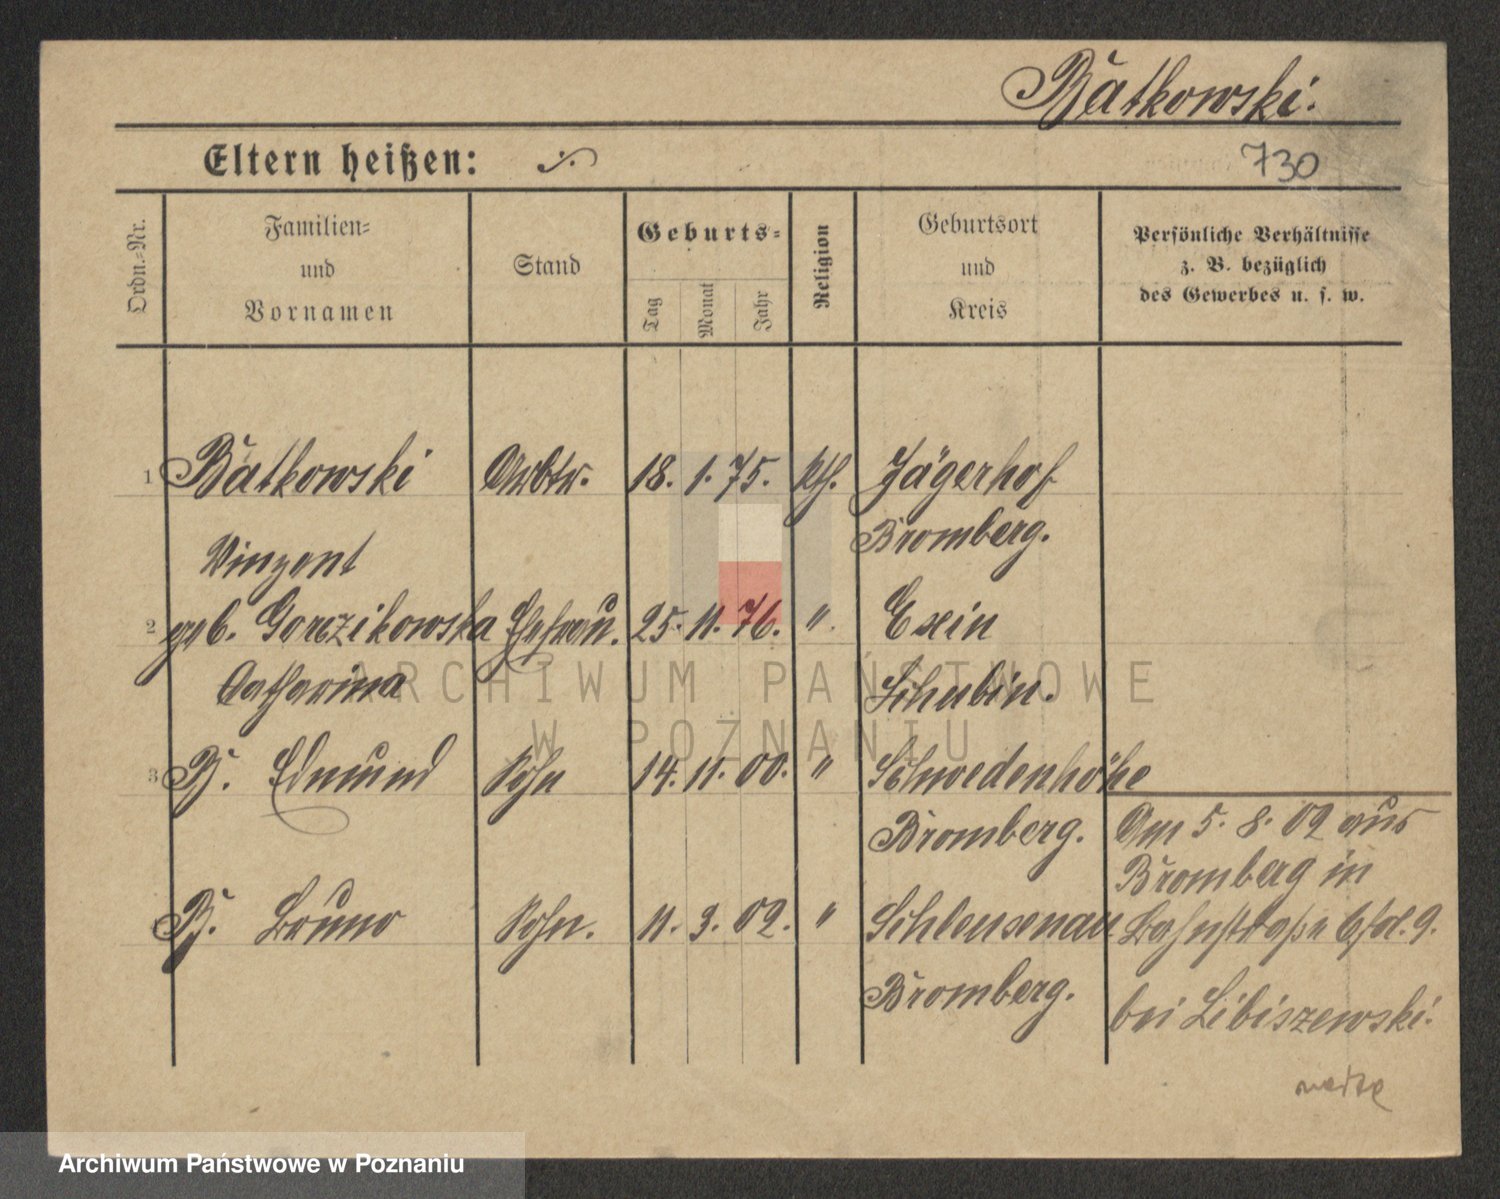 Batkowski.
Eltern heißen: ./.
730
Ordn.-Nr.
Familien-
und
Vornamen
Stand
Geburts-
Tag
Monat
Jahr
Religion
Geburtsort
und
Kreis
Persönliche Verhältnisse
z. B. bezüglich
des Gewerbes u. s. w.
1 Batkowski Arbtr. 18. 1. 75. kth. Jägerhof
Bromberg.
Vinzent
2 geb. Gorczikowska Ehefrau. 25. 11. 76. " Exin
Catharina Schubin.
3 B. Edmund Sohn 14. 11. 00. " Schwedenhöhe
Bromberg. Am 5. 8. 02 aus
Bromberg in
B. Bruno Sohn. 11. 3. 02. " Schleusenau Bahnstraße 9.
Bromberg. bei Libiszewski.
ARCHIWUM PAŃSTWOWE
W POZNANIU
Archiwum Państwowe w Poznaniu